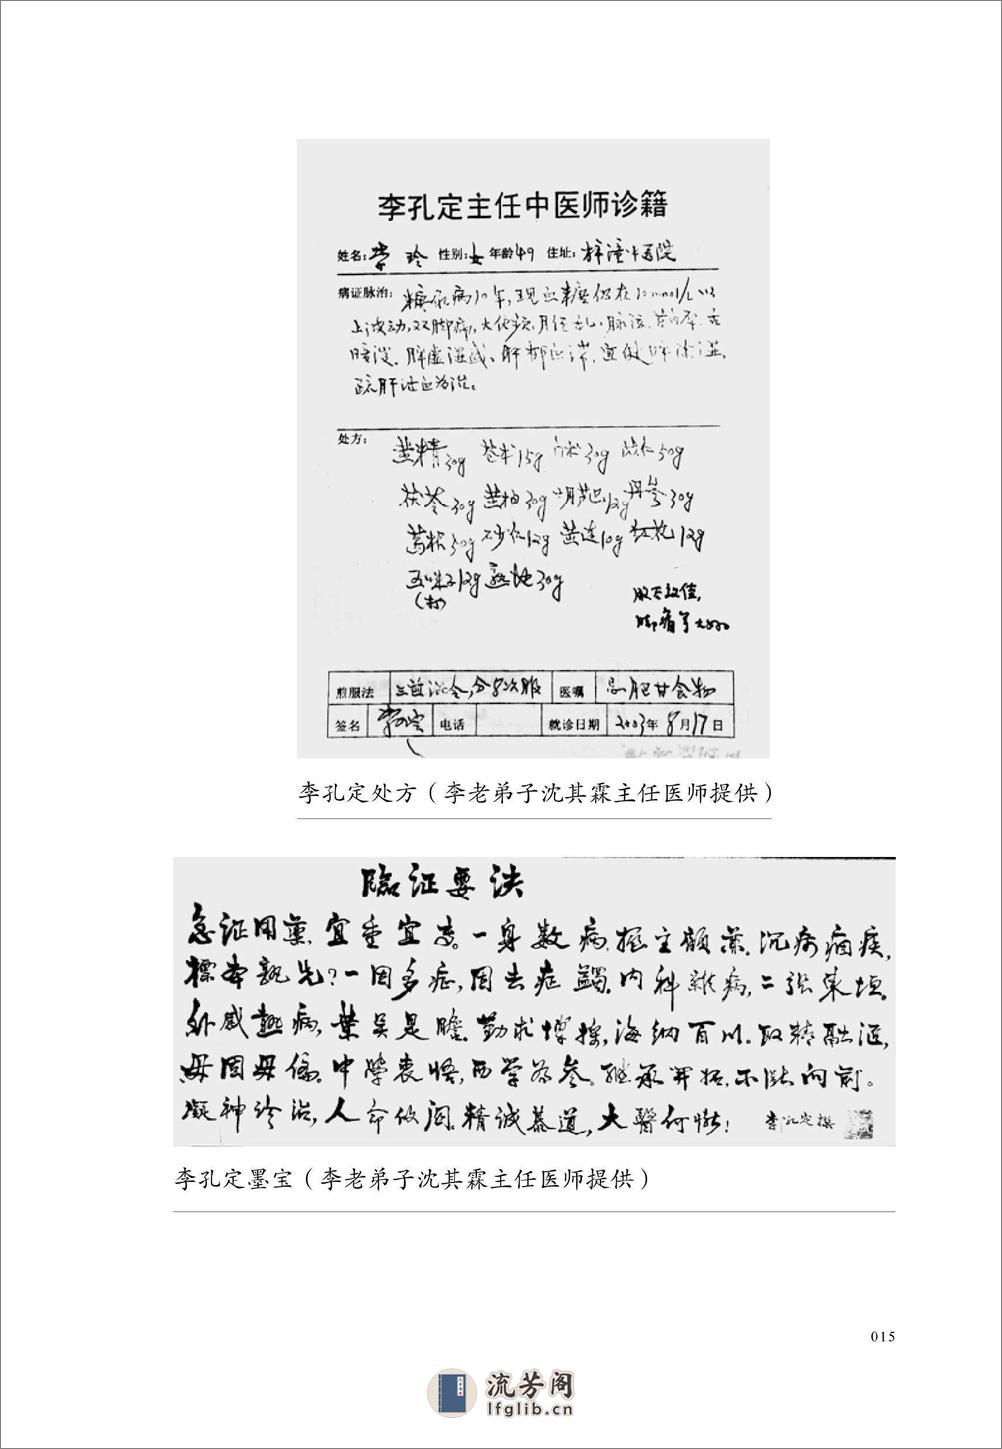 李孔定主任中医师诊籍
姓名: 李 玲 性别: 女 年龄 49 住址: 梓潼中医院
病证脉治: 糖尿病10年,现血糖仍在10mmol/L以
上波动,双脚痛,大便频,月经乱,脉弦,苔白厚,舌
暗淡。脾虚湿盛、肝郁血滞,宜健脾除湿,
疏肝活血为治。
处方:
黄精30g 苍术15g 白术30g 30g
茯苓30g 黄柏30g 胡芦巴12g 丹参30g
葛根30g 砂仁12g 黄连10g 红花12g
五味子12g 熟地30g
服之效佳,
脚痛
煎服法 分8次服 医嘱 忌肥甘食物
签名 李孔定 电话 就诊日期 2003年8月17日
李孔定处方（李老弟子沈其霖主任医师提供）
臨证要诀
急证用藥,宜重宜专。一身數病,握主顧兼。沉疴痼疾,
標本孰先?一因多症,因去症蠲。内科雜病,二張東垣。
外感熱病,葉吴是瞻。勤求博採,海纳百川。取精融汇,
毋固毋偏。中學衷悟,西学为参。继承开拓,不断向前。
凝神诊治,人命攸関。精诚慕道,大醫何慚! 李孔定撰
李孔定墨宝（李老弟子沈其霖主任医师提供）
015
流芳阁
lfglib.cn